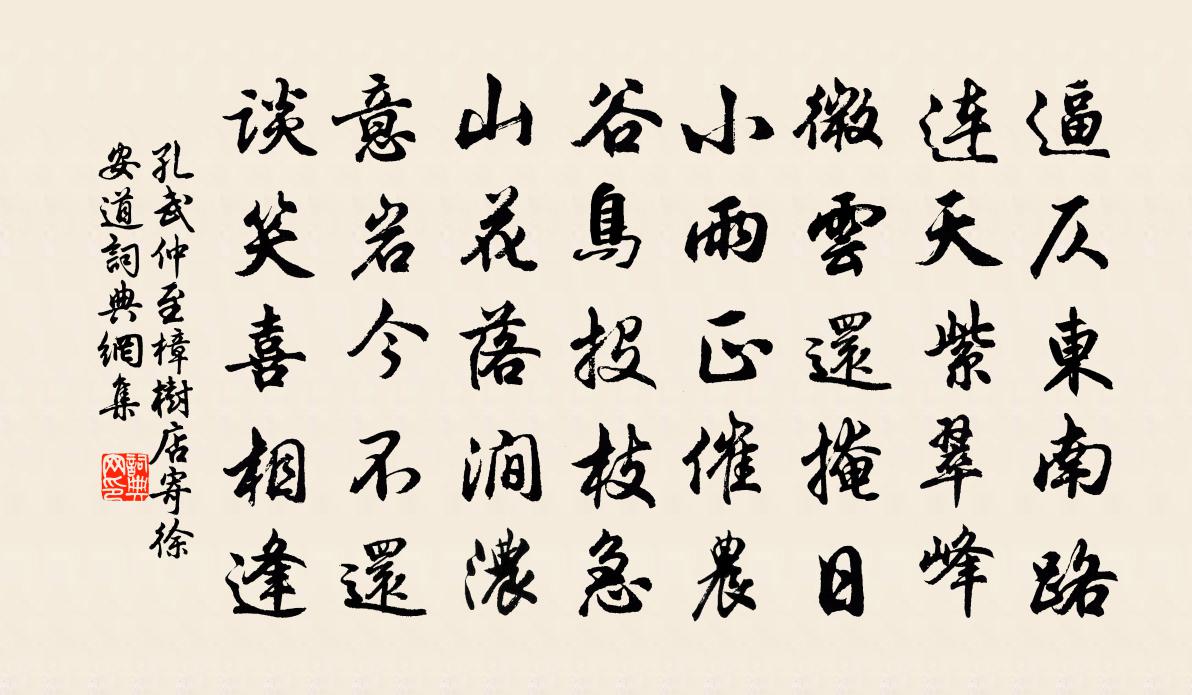 逼仄東南路
連天紫翠峰
微雲還掩日
小雨正催農
谷鳥投枝急
山花落澗濃
意岩今不還
談笑喜相逢
孔武仲至樟樹店寄徐
安道詞典網集
詞典
网印